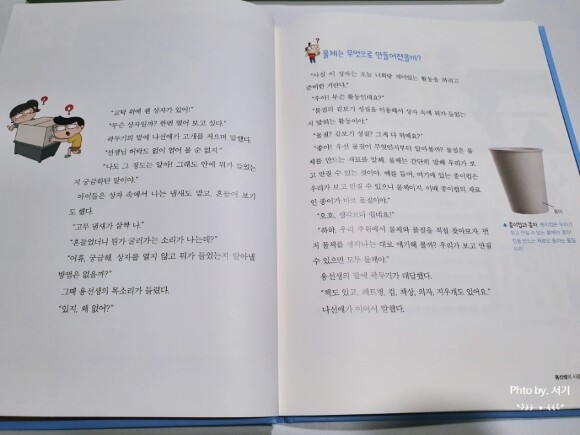 "교탁 위에 웬 상자가 있어!"
"무슨 상자일까? 한번 열어 보고 싶다."
곽두기의 말에 나선애가 고개를 저으며 말했다.
"선생님 허락도 없이 열어 볼 순 없지."
"나도 그 정도는 알아! 그래도 안에 뭐가 들었는
지 궁금하단 말이야."
아이들은 상자 속에서 나는 냄새도 맡고, 흔들어 보기
도 했다.
"고무 냄새가 살짝 나."
"흔들었더니 뭔가 굴러가는 소리가 나는데?"
"어휴, 궁금해. 상자를 열지 않고 뭐가 들었는지 알아낼
방법은 없을까?"
그때 용선생의 목소리가 들렸다.
"있지, 왜 없어?"
물체는 무엇으로 만들어졌을까?
"사실 이 상자는 오늘 너희랑 재미있는 활동을 하려고
준비한 거란다."
"우아! 무슨 활동인데요?"
"물질의 겉보기 성질을 이용해서 상자 속에 뭐가 들었는
지 맞히는 활동이야."
"물질? 겉보기 성질? 그게 다 뭐예요?"
"좋아! 우선 물질이 무엇인지부터 알아볼까? 물질은 물
체를 만드는 재료를 말해. 물체는 간단히 말해 우리가 보
고 만질 수 있는 것이야. 예를 들어, 여기에 있는 종이컵은
우리가 보고 만질 수 있으니 물체이지. 이때 종이컵의 재료
인 종이가 바로 물질이야."
"오호, 생각보다 쉽네요!"
"하하, 우리 주위에서 물체와 물질을 직접 찾아보자. 먼
저 물체를 생각나는 대로 얘기해 볼까? 우리가 보고 만질
수 있으면 모두 물체야."
용선생의 말에 곽두기가 대답했다.
"책도 있고, 페트병, 컵, 책상, 의자, 지우개도 있어요."
나선애가 이어서 말했다.
▲ 종이컵과 종이 종이컵은 우리가
보고 만질 수 있는 물체야. 종이
컵을 만드는 재료인 종이는 물질
이지.
용선생의 시끌
Phto by. 서기